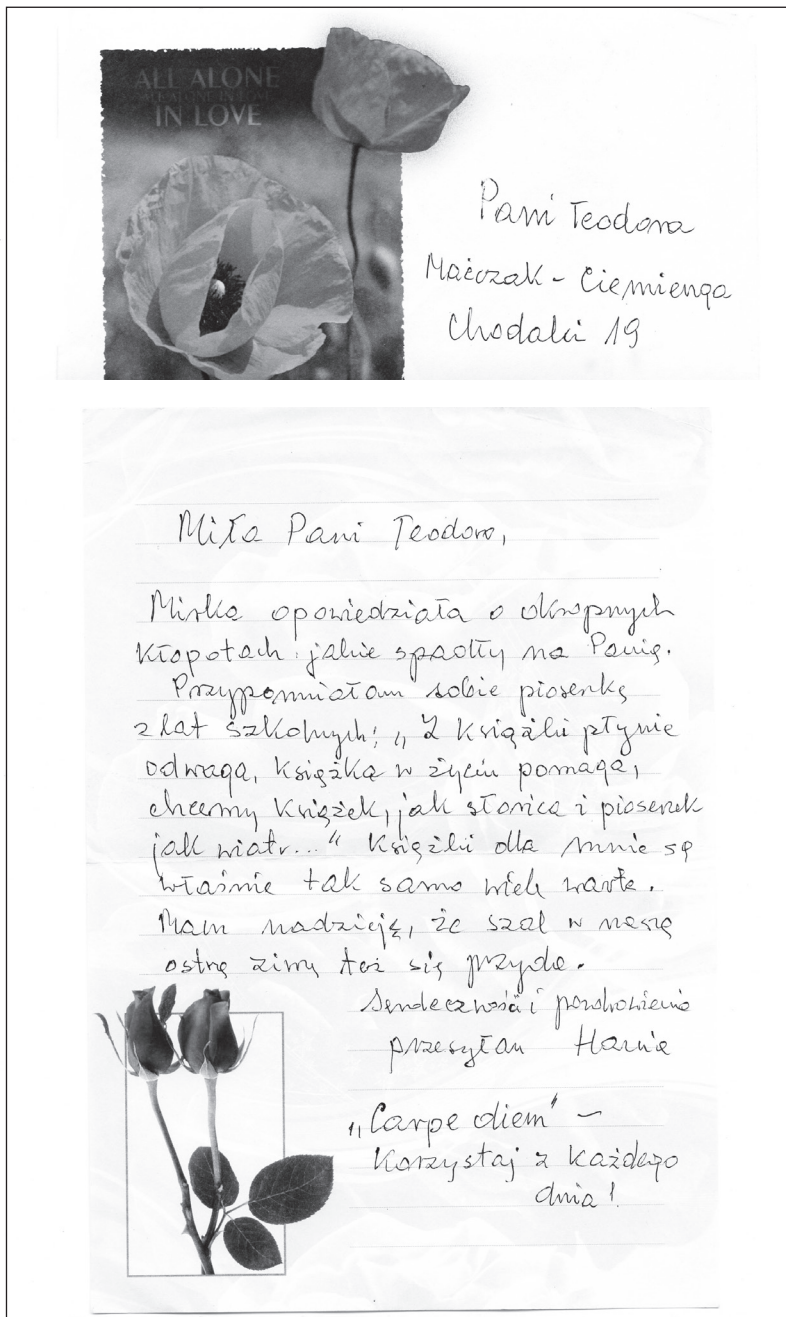 ALL ALONE
IN LOVE
Pani Teodora
Maćczak - Ciemienga
Chodaki 19
Miła Pani Teodoro,
Mirka opowiedziała o okropnych
kłopotach jakie spadły na Panią.
Przypomniałam sobie piosenkę
z lat szkolnych; „Z książki płynie
odwaga, książka w życiu pomaga,
chcemy książek, jak słońca i piosenek
jak wiatr..." Książki dla mnie są
właśnie tak samo wiele warte.
Mam nadzieję, że szal w naszą
ostrą zimę też się przyda.
Serdeczności i pozdrowienia
przesyłam Hania
„Carpe diem" –
Korzystaj z każdego
dnia!